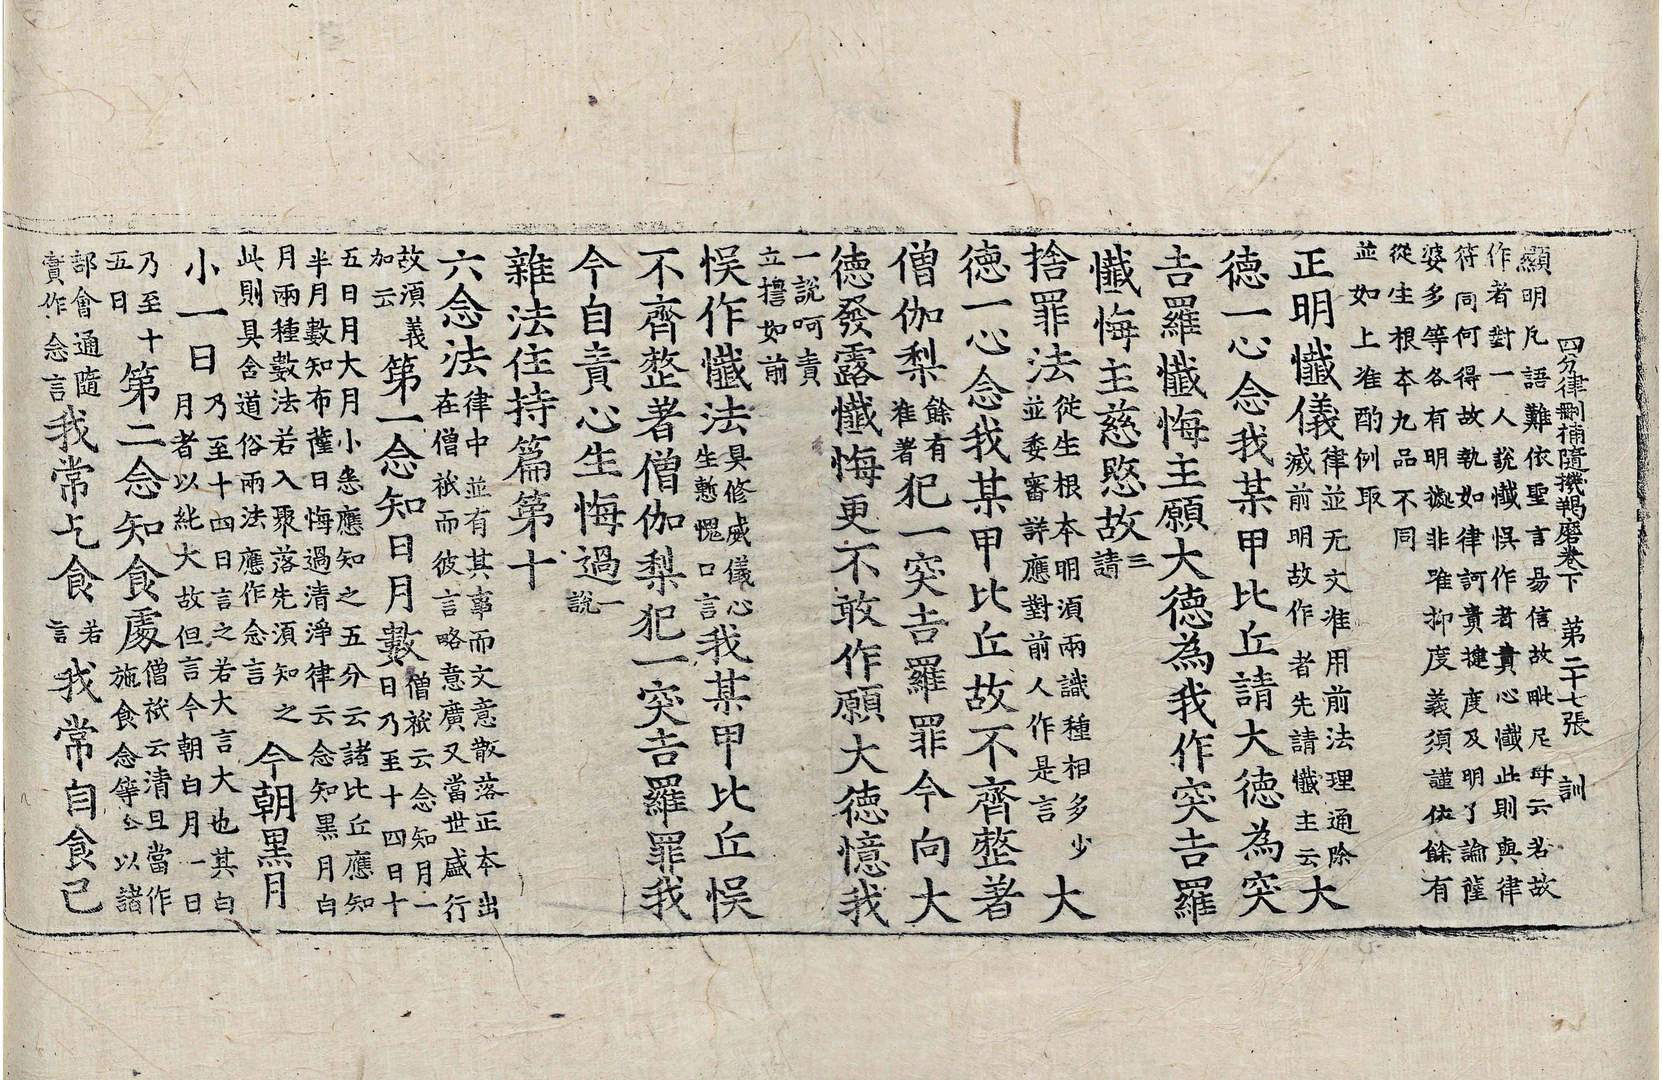 四分律刪補隨機羯磨卷下　第二十七張　訓
顯明凡語難依聖言易信故毗尼母云若故
作者對一人說懺悞作者責心懺此則與律
符同何得故執如律訶責揵度及明了論薩
婆多等各有明據非唯抑度義須謹依餘有
從生根本九品不同
並如上准酌例取
正明懺儀律並无文准用前法理通除
滅前明故作者先請懺主云大
德一心念我某甲比丘請大德為突
吉羅懺悔主願大德為我作突吉羅
懺悔主慈愍故三
請
捨罪法從生根本明須兩識種相多少
並委審詳應對前人作是言大
德一心念我某甲比丘故不齊整著
僧伽梨餘有
准著犯一突吉羅罪今向大
德發露懺悔更不敢作願大德憶我
一說呵責
立擔如前
悞作懺法具修威儀心
生慙愧口言我某甲比丘悞
不齊整著僧伽梨犯一突吉羅罪我
今自責心生悔過一
說
雜法住持篇第十
六念法律中並有其事而文意散落正本出
在僧祇而彼言略意廣又當世盛行
故須義
加云第一念知日月數僧祇云念知月一
日乃至十四日十
五日月大月小悉應知之五分云諸比丘應知
半月數知布薩日悔過清淨律云念知黑月白
月兩種數法若入聚落先須知之
此則具含道俗兩法應作念言今朝黑月
小一日乃至十四日言之若大言大也其白
月者以純大故但言今朝白月一日
乃至十
五日第二念知食處僧祇云清旦當作
施食念等今以諸
部會通隨
實作念言我常乞食若
言我常自食己